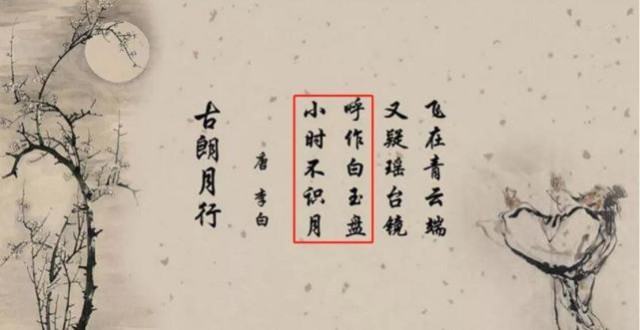 古朗月行
唐 李白
小时不识月
呼作白玉盘
又疑瑶台镜
飞在青云端